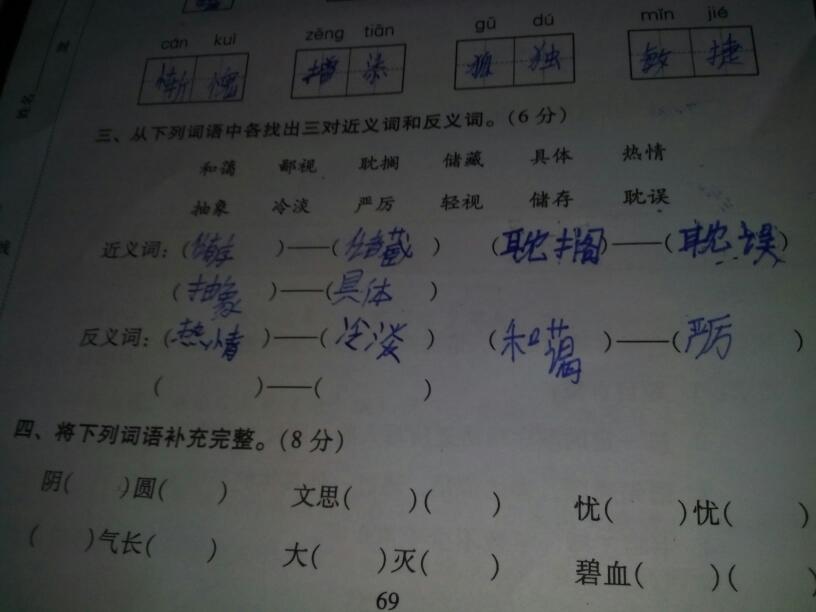 cán kuì zēng tiān gū dú mǐn jié
惭 愧 增 添 孤 独 敏 捷
三、从下列词语中各找出三对近义词和反义词。(6分)
和蔼 鄙视 耽搁 储藏 具体 热情
抽象 冷淡 严厉 轻视 储存 耽误
近义词:(储存)——(储藏) (耽搁)——(耽误)
(抽象)——(具体)
反义词:(热情)——(冷淡) (和蔼)——(严厉)
( )——( )
四、将下列词语补充完整。(8分)
阴( )圆( ) 文思( )( ) 忧( )忧( )
( )气长( ) 大( )灭( ) 碧血( )(
69
姓名